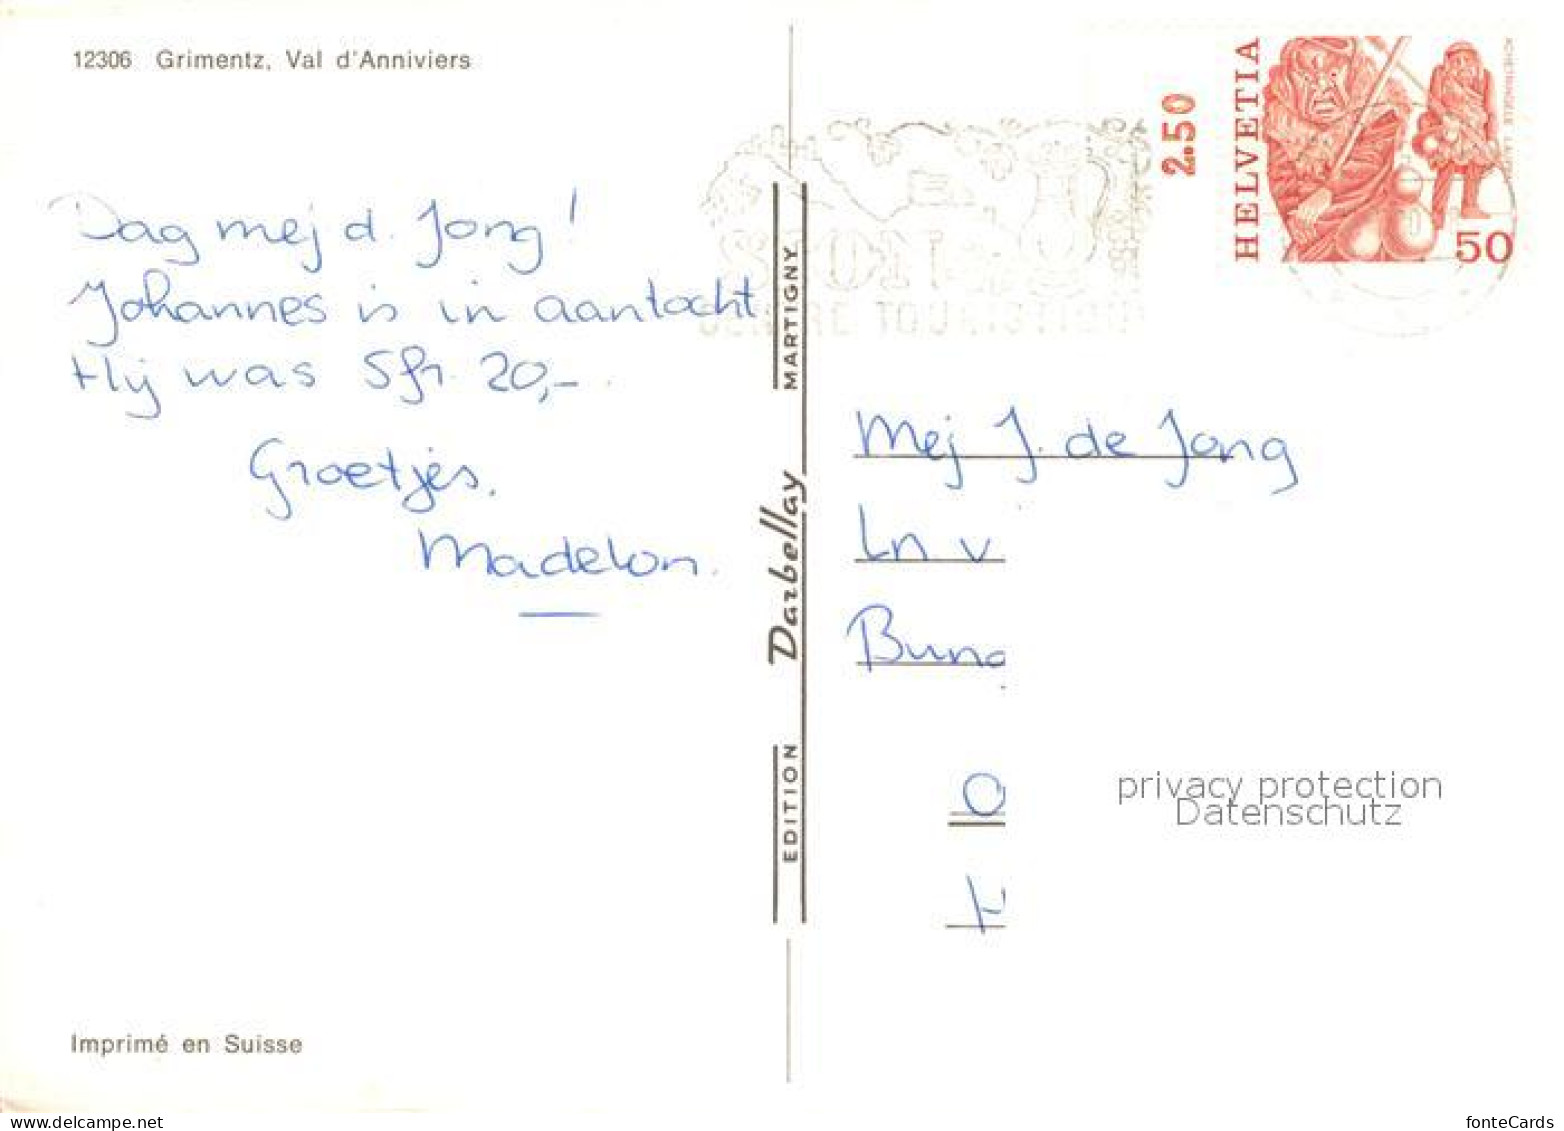 12306 Grimentz, Val d'Anniviers
Dag mej d. Jong!
Johannes is in aantocht
Hij was Sfr. 20,-.
Groetjes.
Madelon.
Imprimé en Suisse
EDITION Darbellay MARTIGNY
2.50
HELVETIA
50
SION
CENTRE TOURISTIQUE
Mej J. de Jong
Ln v
privacy protection
Datenschutz
My Image fonteCards